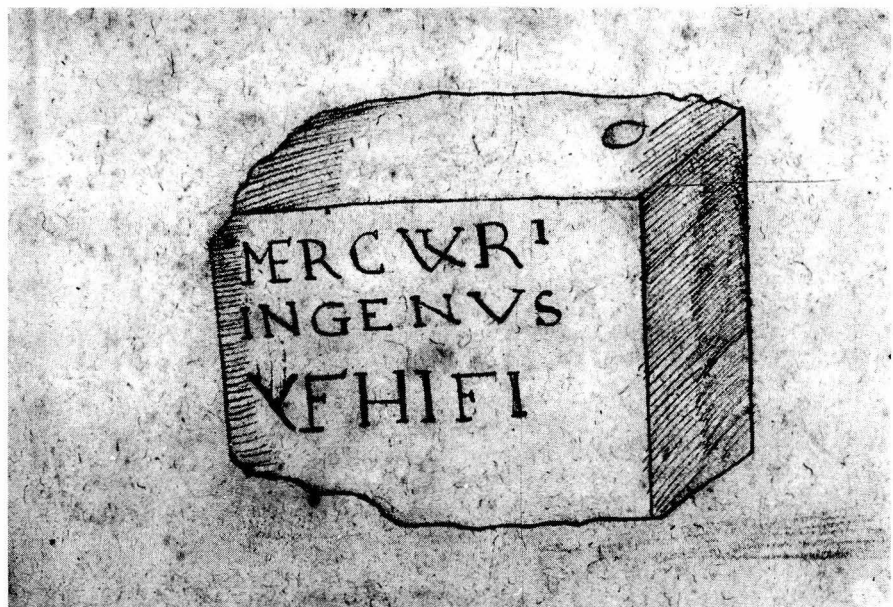 MERCVVRI
INGENVS
VFHIFI